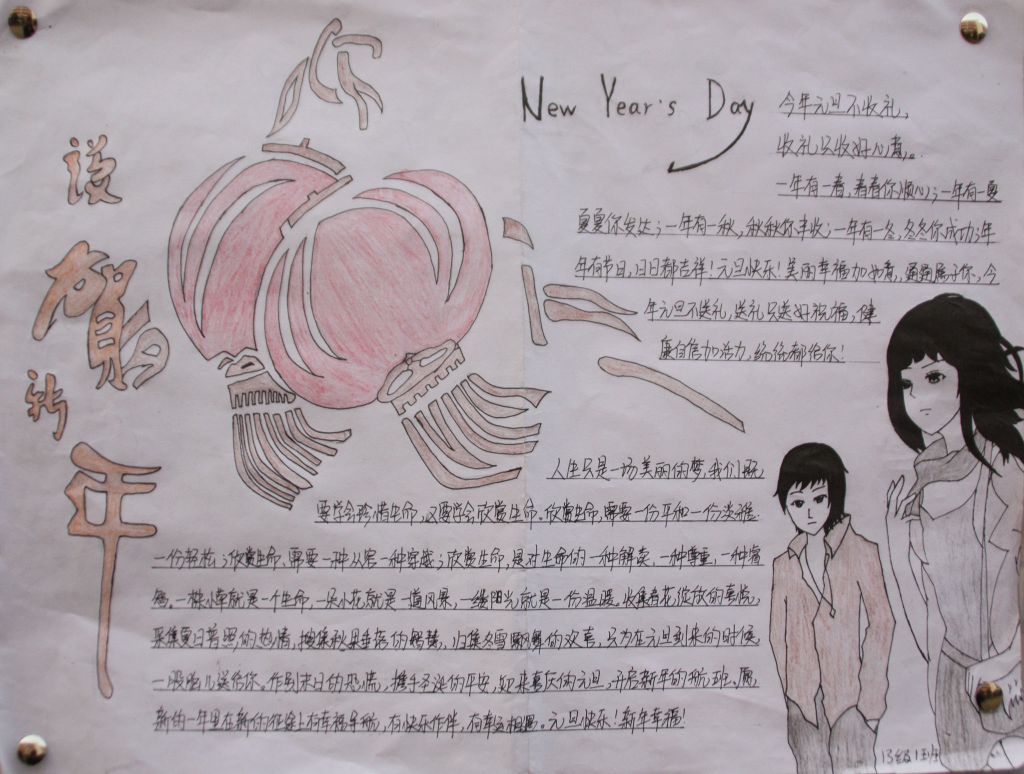 设
贺
新
年
New Year's Day
今年元旦不收礼，
收礼只收好心意。
一年有一春，春春你顺心；一年有一夏
夏夏你发生；一年有一秋，秋秋你丰收；一年有一冬，冬冬你成功；年
年有节日，日日都吉祥！元旦快乐！美丽幸福加如意，通通属于你，今
年元旦不送礼，送礼只送好祝福，健
康自信加活力，统统都给你！
人生只是一场美丽的梦，我们既
要学会珍惜生命，又要学会欣赏生命。欣赏生命，需要一份平和一份淡雅
一份轻松；欣赏生命、需要一种从容一种穿越；欣赏生命，是对生命的一种解读，一种尊重，一种
一株小草就是一个生命，一朵小花就是一道风景，一缕阳光就是一份温暖。收集春花绽放的喜悦，
采集夏日普照的热情，搜集秋果垂落的智慧，归集冬雪飘舞的欢喜，只为在元旦到来的时候
一股脑儿送给你。作别末日的恐慌，携手圣诞的平安，迎来喜庆的元旦，开启新年的航班、愿
新的一年里在新的征途上有幸福导航，有快乐作伴，有幸运相遇。元旦快乐！新年幸福！
13级1班